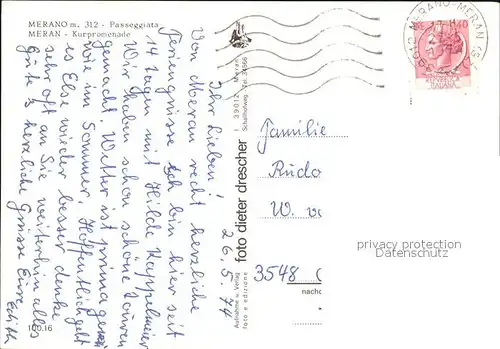 MERANO m. 312 - Passeggiata
MERAN - Kurpromenade
26.5.74
Ihr Lieben!
Von Meran recht herzliche
Feriengrüsse. Ich bin hier seit
14 Tagen mit Hilde Kappelmeier
Wir haben schon schöne Touren
gemacht. Wetter ist prima
wie im Sommer. Hoffentlich geht
es Else wieder besser denke
sehr oft an Sie weiterhin alles
Gute & herzliche Grüsse Eure
Edith
100.16
foto dieter drescher
I 39012 Meran
Schallhofweg Tel.
Aufnahme u. Verlag
foto e edizione
39012 MERANO-MERAN
40
REPUBBLICA
ITALIANA
Familie
Rudo
W. v
3548
nachd
privacy protection
Datenschutz